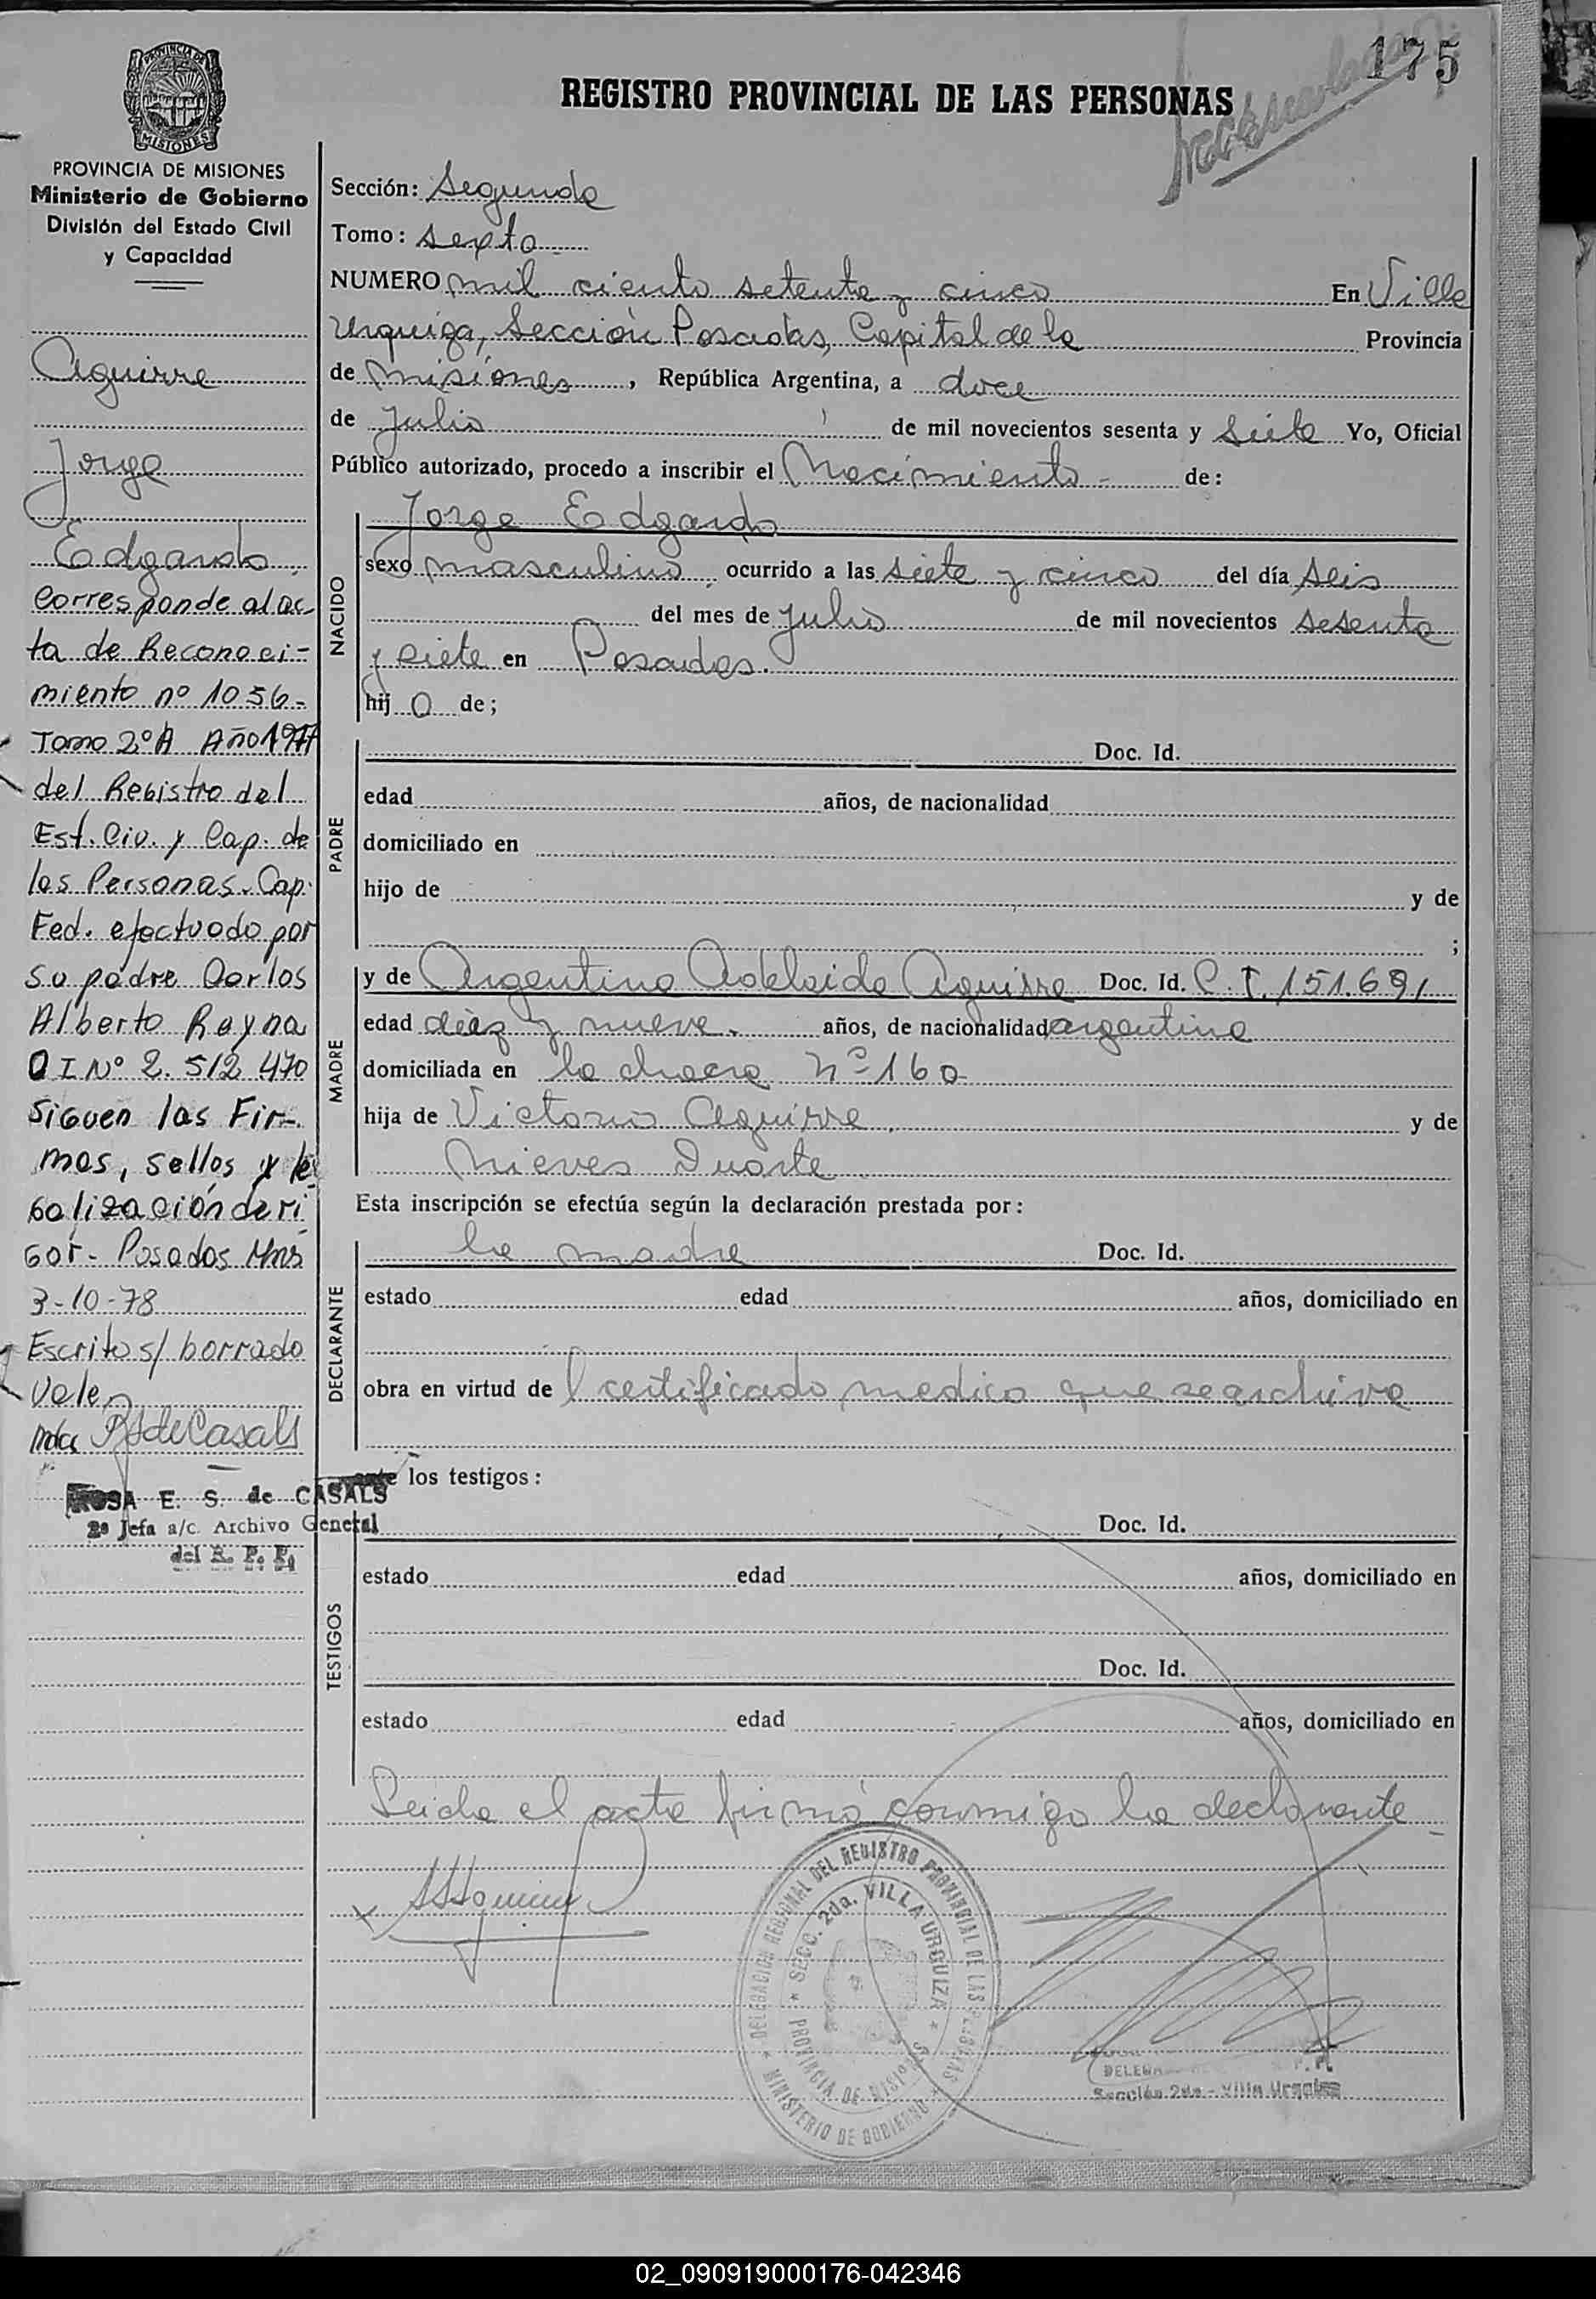 175
REGISTRO PROVINCIAL DE LAS PERSONAS
PROVINCIA DE MISIONES
PROVINCIA DE MISIONES
Ministerio de Gobierno
División del Estado Civil
y Capacidad
Aguirre
Jorge
Edgardo
Corresponde al ac-
ta de Reconoci-
miento nº 1056-
Tomo 2ºA Año 1977
del Registro del
Est. Civ. y Cap. de
las Personas. Cap.
Fed. efectuado por
su padre Carlos
Alberto Reyna
D I Nº 2.512 470
Siguen las Fir-
mas, sellos y le
galización de ri
gor- Posadas Mns
3-10-78
Escrito s/ borrado
Vale
RS de Casals
ROSA E. S. de CASALS
2ª Jefa a/c. Archivo General
del R. P. P.
Sección: Segunda
Tomo: Sexto
NUMERO mil ciento setenta y cinco En Villa
Urquiza, Sección Posadas, Capital de la Provincia
de Misiones, República Argentina, a doce
de Julio de mil novecientos sesenta y siete Yo, Oficial
Público autorizado, procedo a inscribir el Nacimiento - de:
NACIDO
Jorge Edgardo
sexo masculino, ocurrido a las siete y cinco del día seis
del mes de Julio de mil novecientos sesenta
y siete en Posadas.
hij o de;
PADRE
Doc. Id.
edad años, de nacionalidad
domiciliado en
hijo de y de
;
MADRE
y de Argentina Adelaida Aguirre Doc. Id. C.I. 151.691
edad diez y nueve. años, de nacionalidad argentina
domiciliada en la chacra Nº 160
hija de Victorio Aguirre y de
Nieves Duarte
Esta inscripción se efectúa según la declaración prestada por:
DECLARANTE
la madre Doc. Id.
estado edad años, domiciliado en
obra en virtud de l certificado medico que se archiva
ante los testigos:
TESTIGOS
Doc. Id.
estado edad años, domiciliado en
Doc. Id.
estado edad años, domiciliado en
Leida el acta firmó conmigo la declarante
DELEGACION REGIONAL DEL REGISTRO PROVINCIAL DE LAS PERSONAS
SECC. 2da. VILLA URQUIZA
PROVINCIA DE MISIONES
MINISTERIO DE GOBIERNO
Sección 2da - Villa Urquiza
02_090919000176-042346